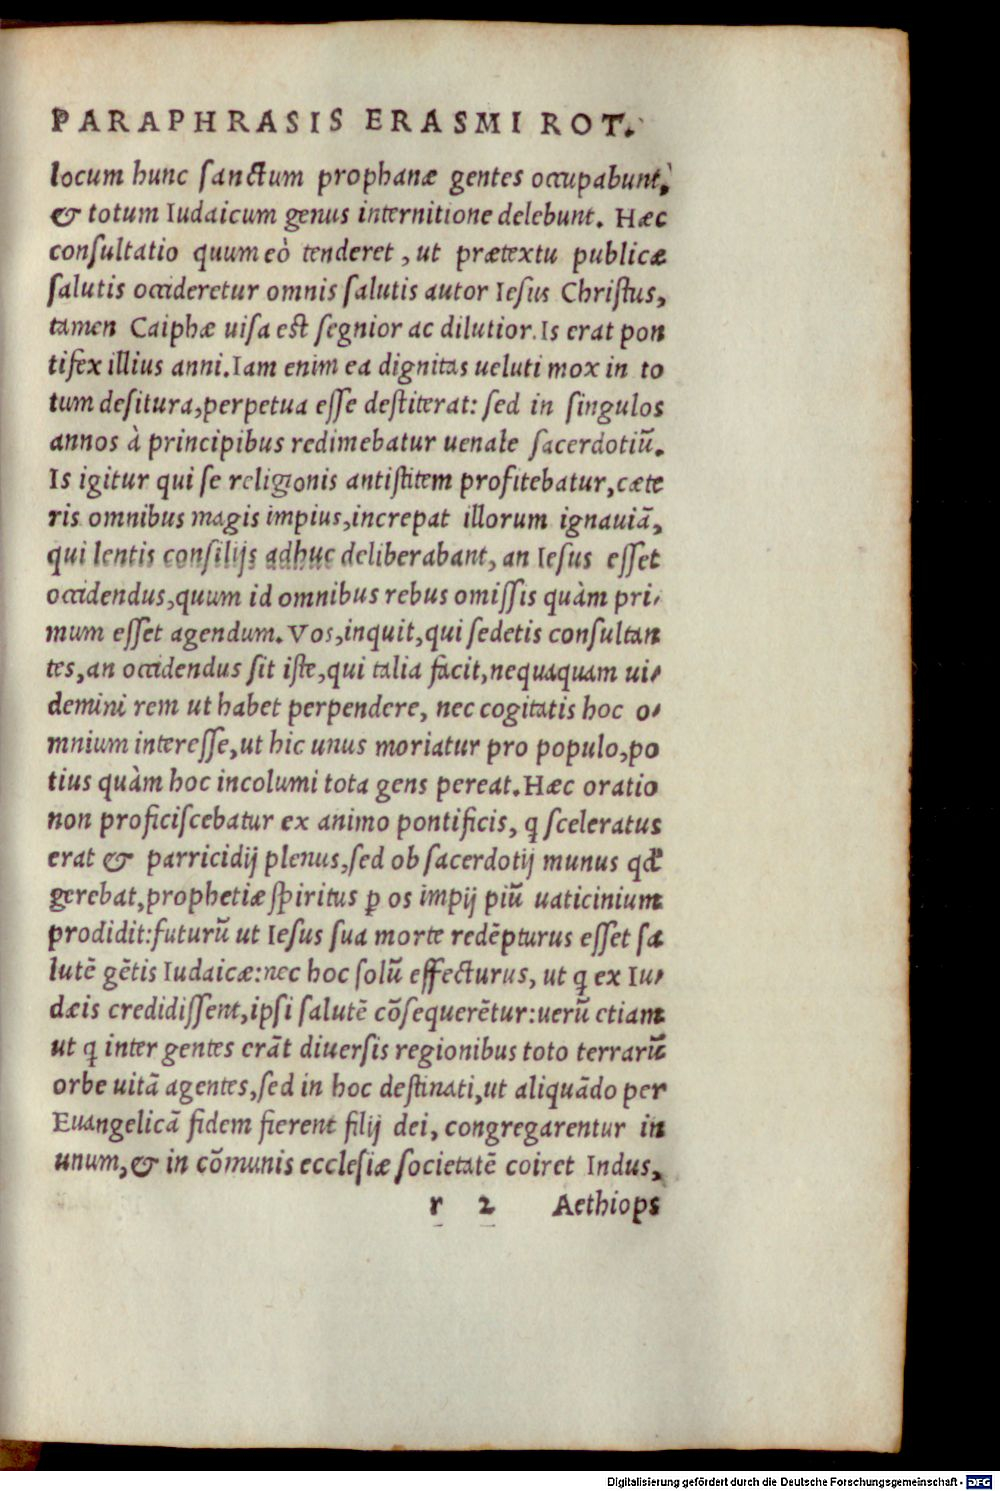 PARAPHRASIS ERASMI ROT.
locum hunc sanctum prophanæ gentes occupabunt,
& totum Iudaicum genus internitione delebunt. Hæc
consultatio quum eò tenderet, ut prætextu publicæ
salutis occideretur omnis salutis autor Iesus Christus,
tamen Caiphæ uisa est segnior ac dilutior. Is erat pon
tifex illius anni. Iam enim ea dignitas ueluti mox in to
tum desitura, perpetua esse destiterat: sed in singulos
annos à principibus redimebatur uenale sacerdotiũ.
Is igitur qui se religionis antistitem profitebatur, cæte
ris omnibus magis impius, increpat illorum ignauiã,
qui lentis consilijs adhuc deliberabant, an Iesus esset
occidendus, quum id omnibus rebus omissis quàm pri-
mum esset agendum. Vos, inquit, qui sedetis consultan
tes, an occidendus sit iste, qui talia facit, nequaquam ui-
demini rem ut habet perpendere, nec cogitatis hoc o-
mnium interesse, ut hic unus moriatur pro populo, po
tius quàm hoc incolumi tota gens pereat. Hæc oratio
non proficiscebatur ex animo pontificis, q̃ sceleratus
erat & parricidij plenus, sed ob sacerdotij munus qď
gerebat, prophetiæ spiritus ꝑ os impij piũ uaticinium
prodidit: futurũ ut Iesus sua morte redẽpturus esset sa
lutẽ gẽtis Iudaicæ: nec hoc solũ effecturus, ut q̃ ex Iu-
dæis credidissent, ipsi salutẽ cõsequerẽtur: uerũ etiam
ut q̃ inter gentes erãt diuersis regionibus toto terrarũ
orbe uitã agentes, sed in hoc destinati, ut aliquãdo per
Euangelicã fidem fierent filij dei, congregarentur in
unum, & in cõmunis ecclesiæ societatẽ coiret Indus,
r 2 Aethiops
Digitalisierung gefördert durch die Deutsche Forschungsgemeinschaft - DFG